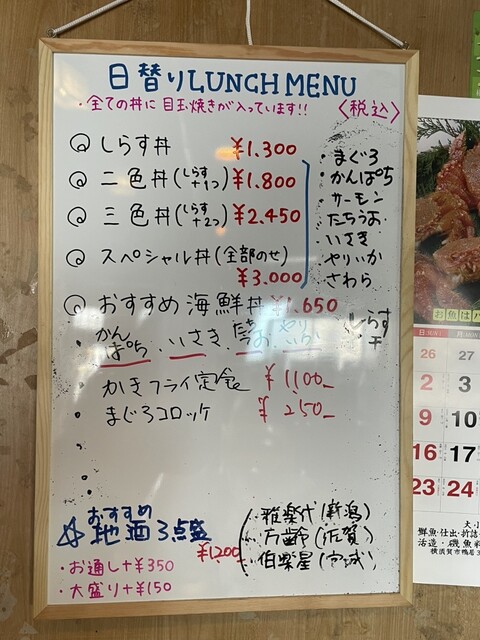 日替りLUNCH MENU
・全ての丼に目玉焼きが入っています!! <税込>
しらす丼 ¥1.300
二色丼(しらす+1つ) ¥1.800
三色丼(しらす+2つ) ¥2.450
スペシャル丼(全部のせ)
¥3.000
・まぐろ
・かんぱち
・サーモン
・たちうお
・いさき
・やりいか
・さわら
おすすめ海鮮丼 ¥1.650
・かんぱち・いさき・たちうお・やりいか しらす
・かきフライ定食 ¥1100-
・まぐろコロッケ ¥250-
☆おすすめ地酒3点盛
¥1200
・雅楽代(新潟)
・万齢(佐賀)
・伯楽星(宮城)
・お通し+¥350
・大盛り+¥150
お魚は
日 月
26 27
2 3
9 10
16 17
23 24
鮮魚・仕出・折詰
活造・磯魚料
横須賀市鴨居3